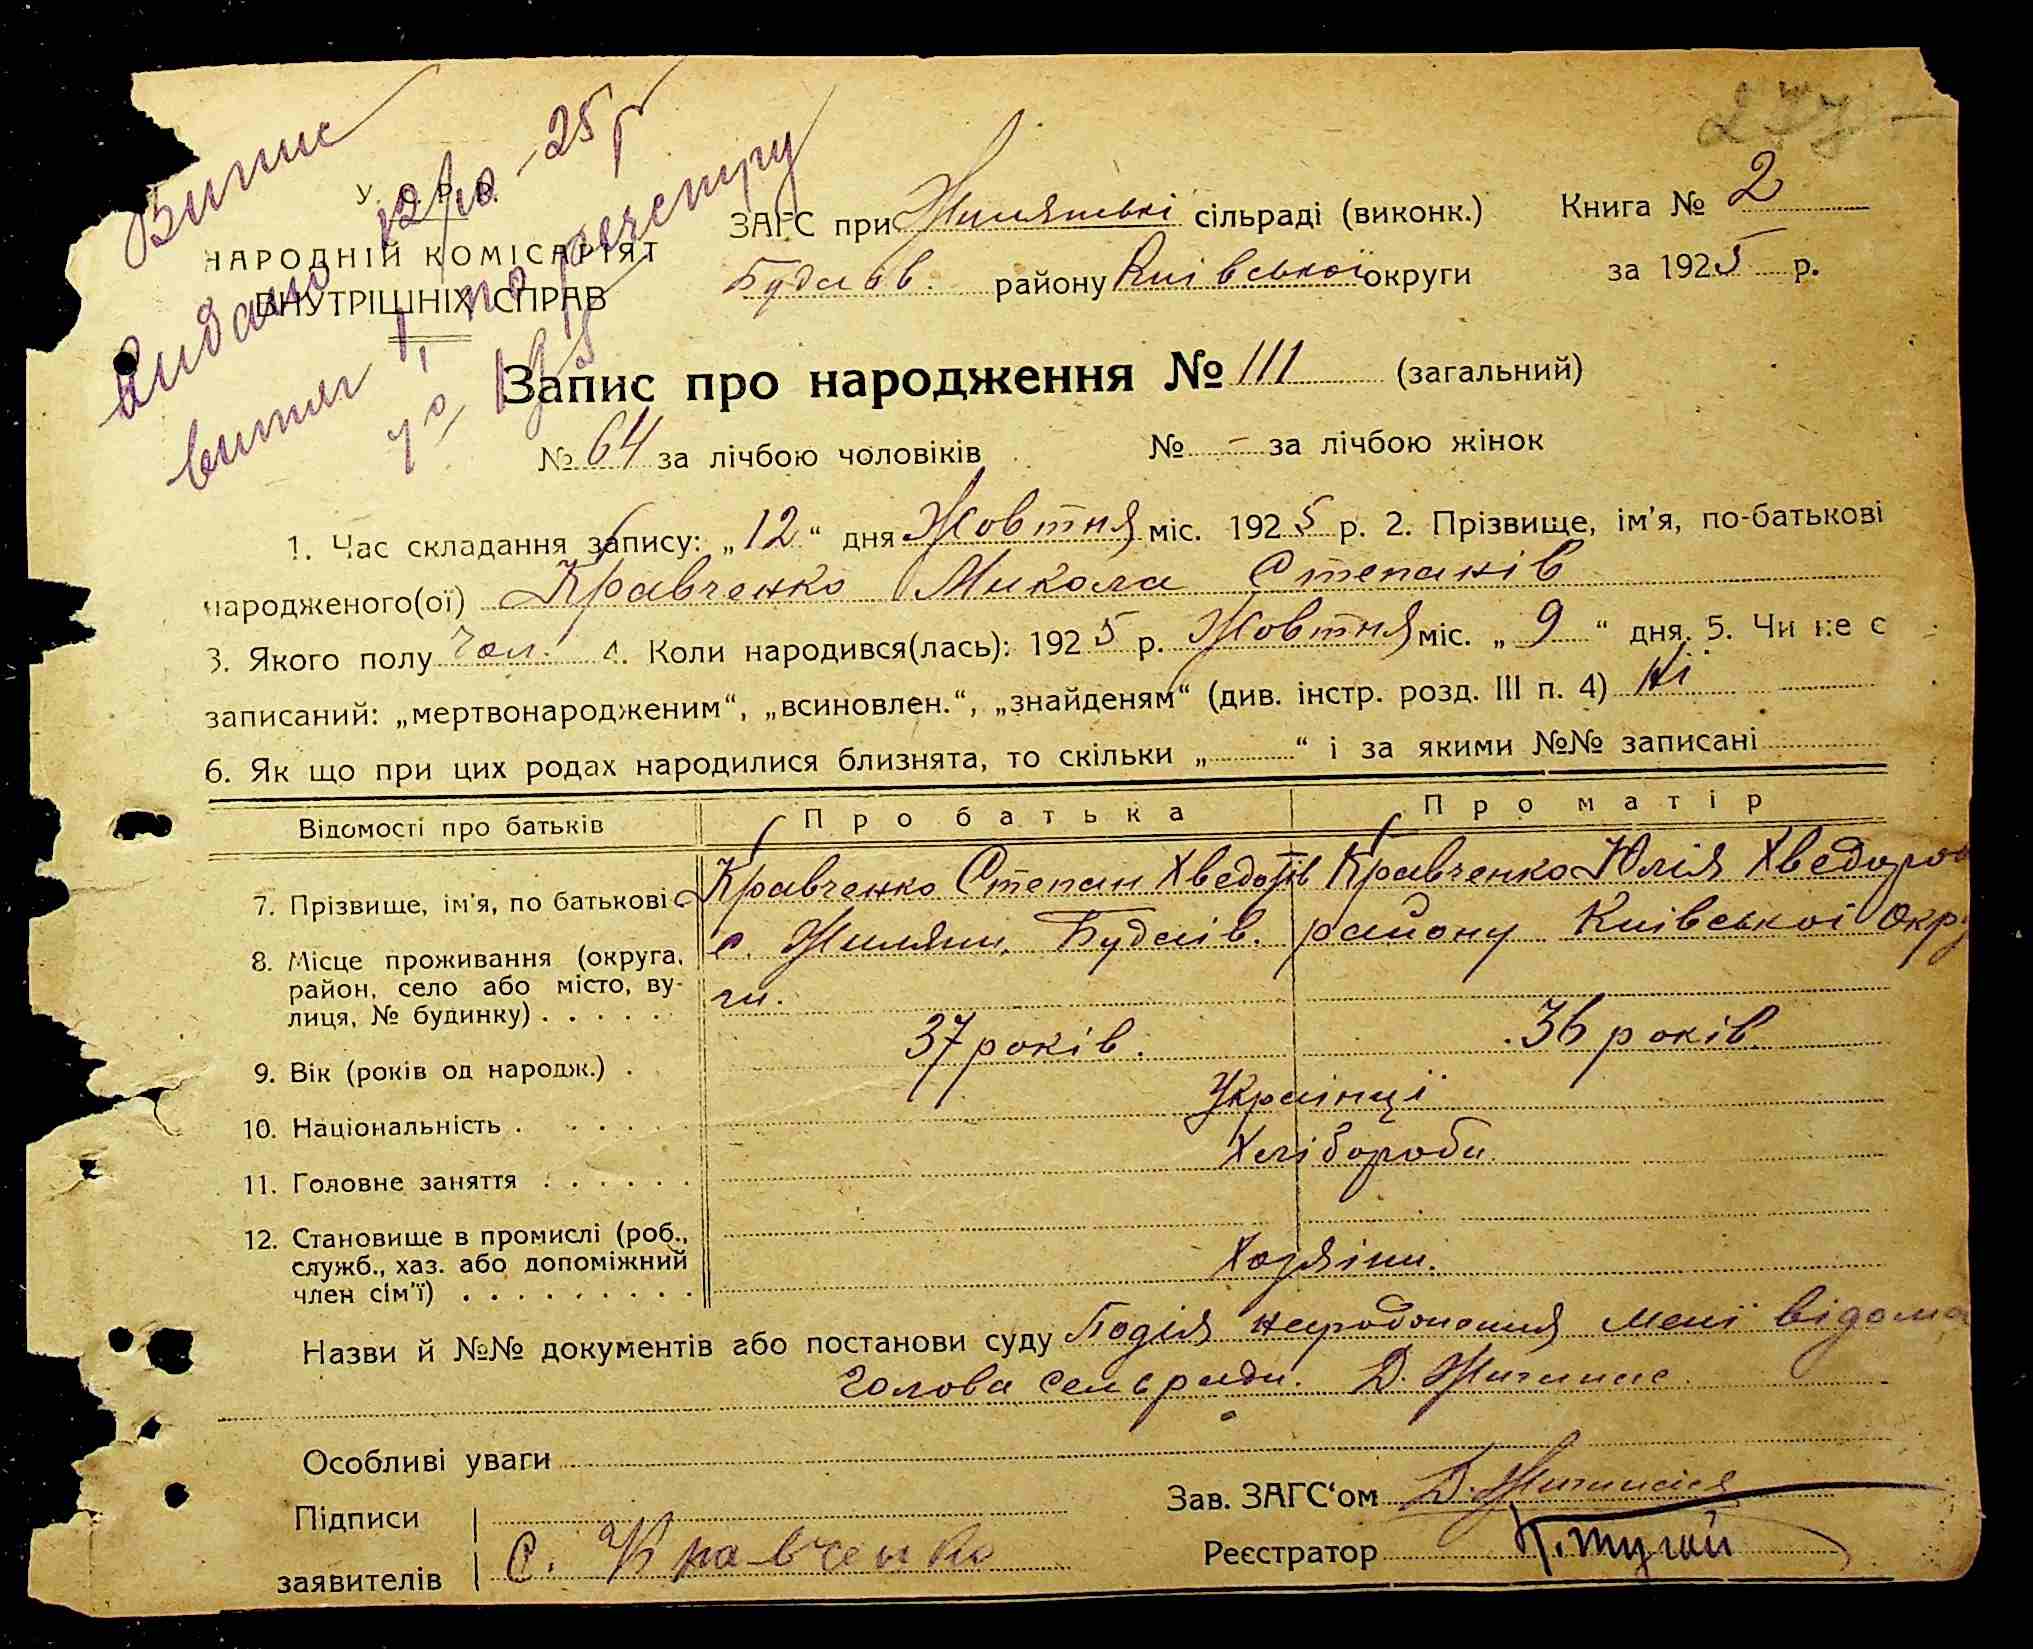 Випис
видано 12/10-25 р
витяг 1, по реєстру
У. С. Р. Р.
НАРОДНІЙ КОМІСАРІЯТ
ВНУТРІШНІХ СПРАВ
ЗАГС при Жилянські сільраді (виконк.) Книга № 2
Будаїв. району Київської округи за 1925 р.
Запис про народження № 111 (загальний)
№ 64 за лічбою чоловіків № - за лічбою жінок
1. Час складання запису: „12“ дня Жовтня міс. 1925 р. 2. Прізвище, ім'я, по-батькові
народженого(ої) Кравченко Микола Степанів
3. Якого полу чол. 4. Коли народився(лась): 1925 р. Жовтня міс. „9“ дня. 5. Чи не є
записаний: „мертвонародженим“, „всиновлен.“, „знайденям“ (див. інстр. розд. III п. 4) Ні
6. Як що при цих родах народилися близнята, то скільки „ “ і за якими №№ записані
Відомості про батьків Про батька Про матір
7. Прізвище, ім'я, по батькові Кравченко Степан Хведорів Кравченко Юлія Хведоров
8. Місце проживання (округа, с. Жиляни, Будаїв. району Київської Окру
район, село або місто, ву- ги.
лиця, № будинку)
9. Вік (років од народж.) 37 років. 36 років.
10. Національність Українці
11. Головне заняття Хлібороби
12. Становище в промислі (роб.,
служб., хаз. або допоміжний Хозяіни.
член сім'ї)
Назви й №№ документів або постанови суду Подія народження мені відома
Голова сельради. Д.
Особливі уваги
Зав. ЗАГС'ом Д.
Підписи
заявителів С. Кравченко
Реєстратор